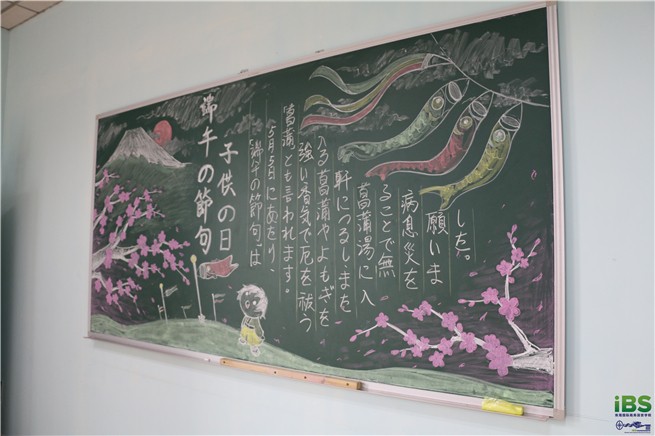 端午の節句
子供の日
「端午の節句」は
5月5日にあをり、
「菖蒲とも言われます。
強い香気で厄を祓う
入る菖蒲やよもぎを
軒につるし、まを
菖蒲湯に入
ることで無
病息災を
願いま
した。
iBS